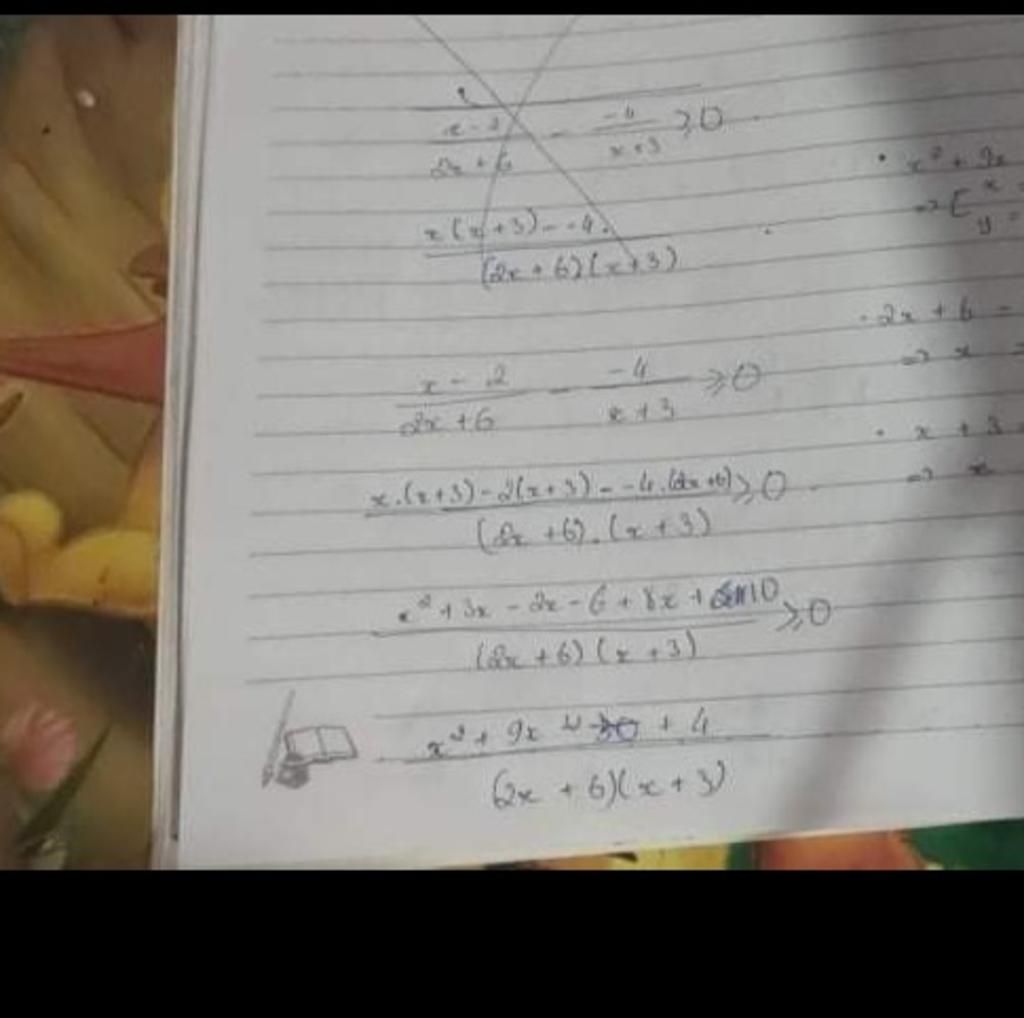 x - 2 / 2x + 6 - -4 / x + 3 ≥ 0 .
x(x+3) - -4. / (2x + 6)(x+3)
x - 2 / 2x + 6 - -4 / x + 3 ≥ 0
x.(x+3) - 2(x+3) - -4.(2x+6) / (2x + 6).(x + 3) ≥ 0
x² + 3x - 2x - 6 + 8x + 10 / (2x + 6)(x + 3) ≥ 0
x² + 9x + 4 / (2x + 6)(x + 3)
• x² + 9x
=> [ x =
y =
- 2x + 6 =
=> x =
• x + 3 =
=> x